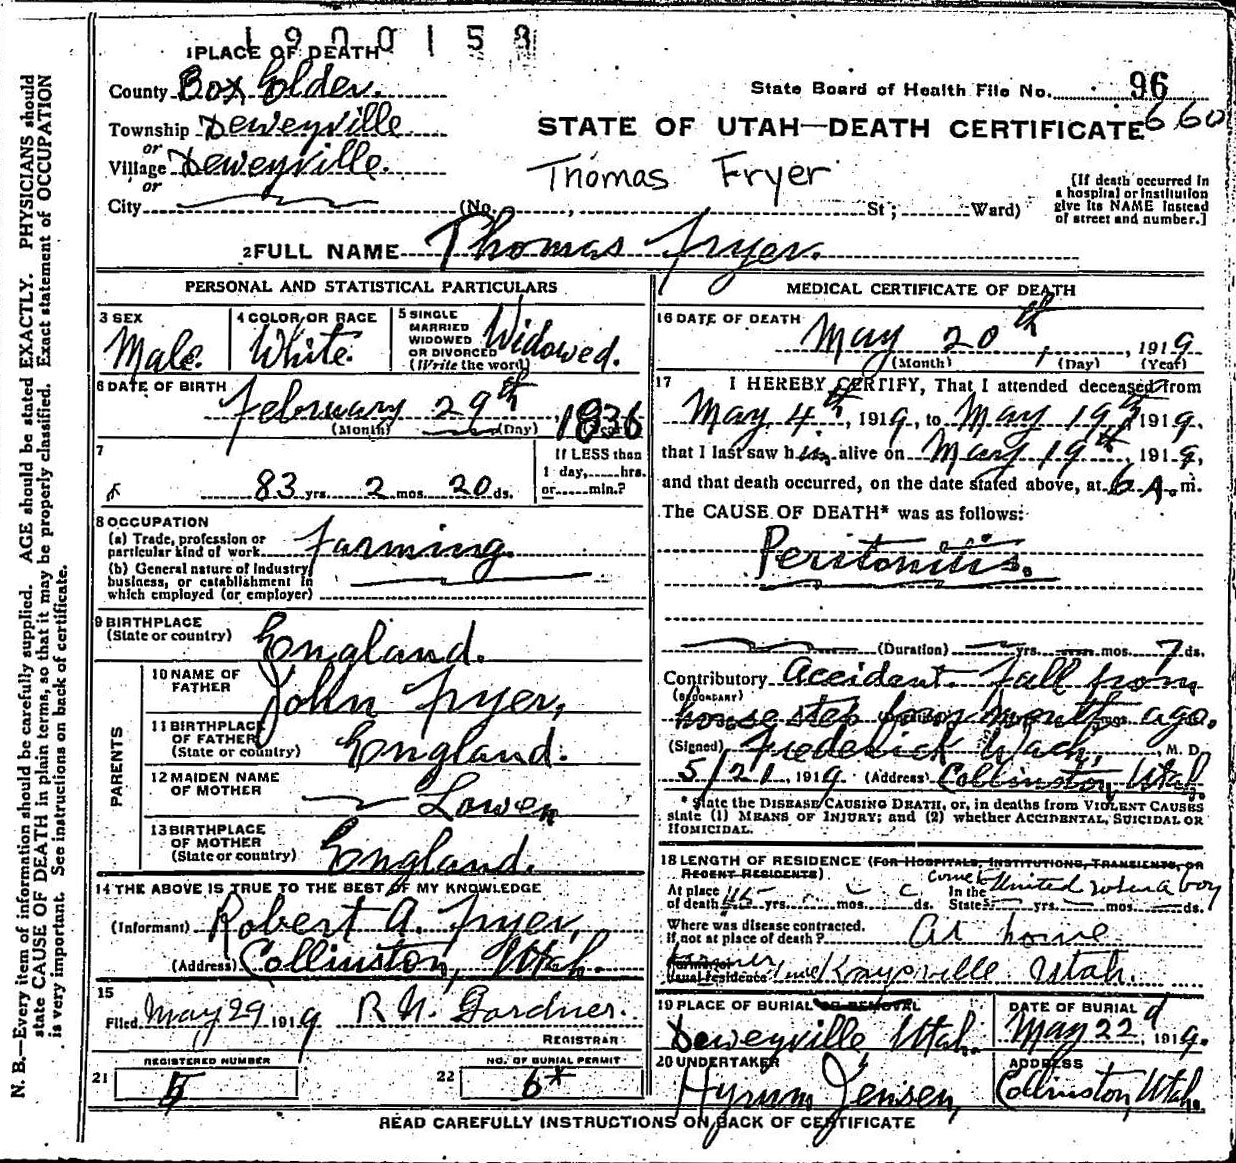 1900158
1 PLACE OF DEATH
County Box Elder.
State Board of Health File No. 96
660
Township Deweyville
or
STATE OF UTAH—DEATH CERTIFICATE
Village Deweyville.
or
Thomas Fryer
City (No. , St ; Ward)
[If death occurred in
a hospital or institution
give its NAME instead
of street and number.]
2 FULL NAME Thomas Fryer.
PERSONAL AND STATISTICAL PARTICULARS
3 SEX
Male.
4 COLOR OR RACE
White.
5 SINGLE
MARRIED
WIDOWED
OR DIVORCED
(Write the word)
Widowed.
6 DATE OF BIRTH
February 29th, 1836
(Month) (Day) (Year)
7
83 yrs. 2 mos. 20 ds.
If LESS than
1 day, hrs.
or min.?
8 OCCUPATION
(a) Trade, profession or
particular kind of work Farming.
(b) General nature of Industry
business, or establishment in
which employed (or employer)
9 BIRTHPLACE
(State or country) England.
PARENTS
10 NAME OF
FATHER John Fryer,
11 BIRTHPLACE
OF FATHER
(State or country) England.
12 MAIDEN NAME
OF MOTHER Lowen
13 BIRTHPLACE
OF MOTHER
(State or country) England.
14 THE ABOVE IS TRUE TO THE BEST OF MY KNOWLEDGE
(Informant) Robert A. Fryer,
(Address) Collinston, Utah.
15
Filed May 29, 1919 R N. Gardner.
REGISTRAR
21 REGISTERED NUMBER
5
22 NO. OF BURIAL PERMIT
6*
MEDICAL CERTIFICATE OF DEATH
16 DATE OF DEATH
May 20th, 1919
(Month) (Day) (Year)
17 I HEREBY CERTIFY, That I attended deceased from
May 4th, 1919, to May 19th, 1919.
that I last saw him alive on May 19th, 1919,
and that death occurred, on the date stated above, at 6 A. m.
The CAUSE OF DEATH* was as follows:
Peritonitis.
(Duration) yrs. mos. 7 ds.
Contributory Accident. Fall from
(SECONDARY)
house step four months ago.
(Signed) Frederick Wach, M. D.
5/21, 1919 (Address) Collinston, Utah.
* State the DISEASE CAUSING DEATH, or, in deaths from VIOLENT CAUSES
state (1) MEANS OF INJURY; and (2) whether ACCIDENTAL, SUICIDAL OR
HOMICIDAL.
18 LENGTH OF RESIDENCE (FOR HOSPITALS, INSTITUTIONS, TRANSIENTS, OR
RECENT RESIDENTS) came to
At place of death 45 yrs. mos. ds. In the United States when a boy yrs. mos. ds.
Where was disease contracted.
if not at place of death? At home
Former or
usual residence Kaysville Utah.
19 PLACE OF BURIAL OR REMOVAL
Deweyville Utah.
DATE OF BURIAL
May 22d, 1919.
20 UNDERTAKER
Hyrum Jensen,
ADDRESS
Collinston, Utah.
READ CAREFULLY INSTRUCTIONS ON BACK OF CERTIFICATE
N. B.—Every item of information should be carefully supplied. AGE should be stated EXACTLY. PHYSICIANS should
state CAUSE OF DEATH in plain terms, so that it may be properly classified. Exact statement of OCCUPATION
is very important. See instructions on back of certificate.